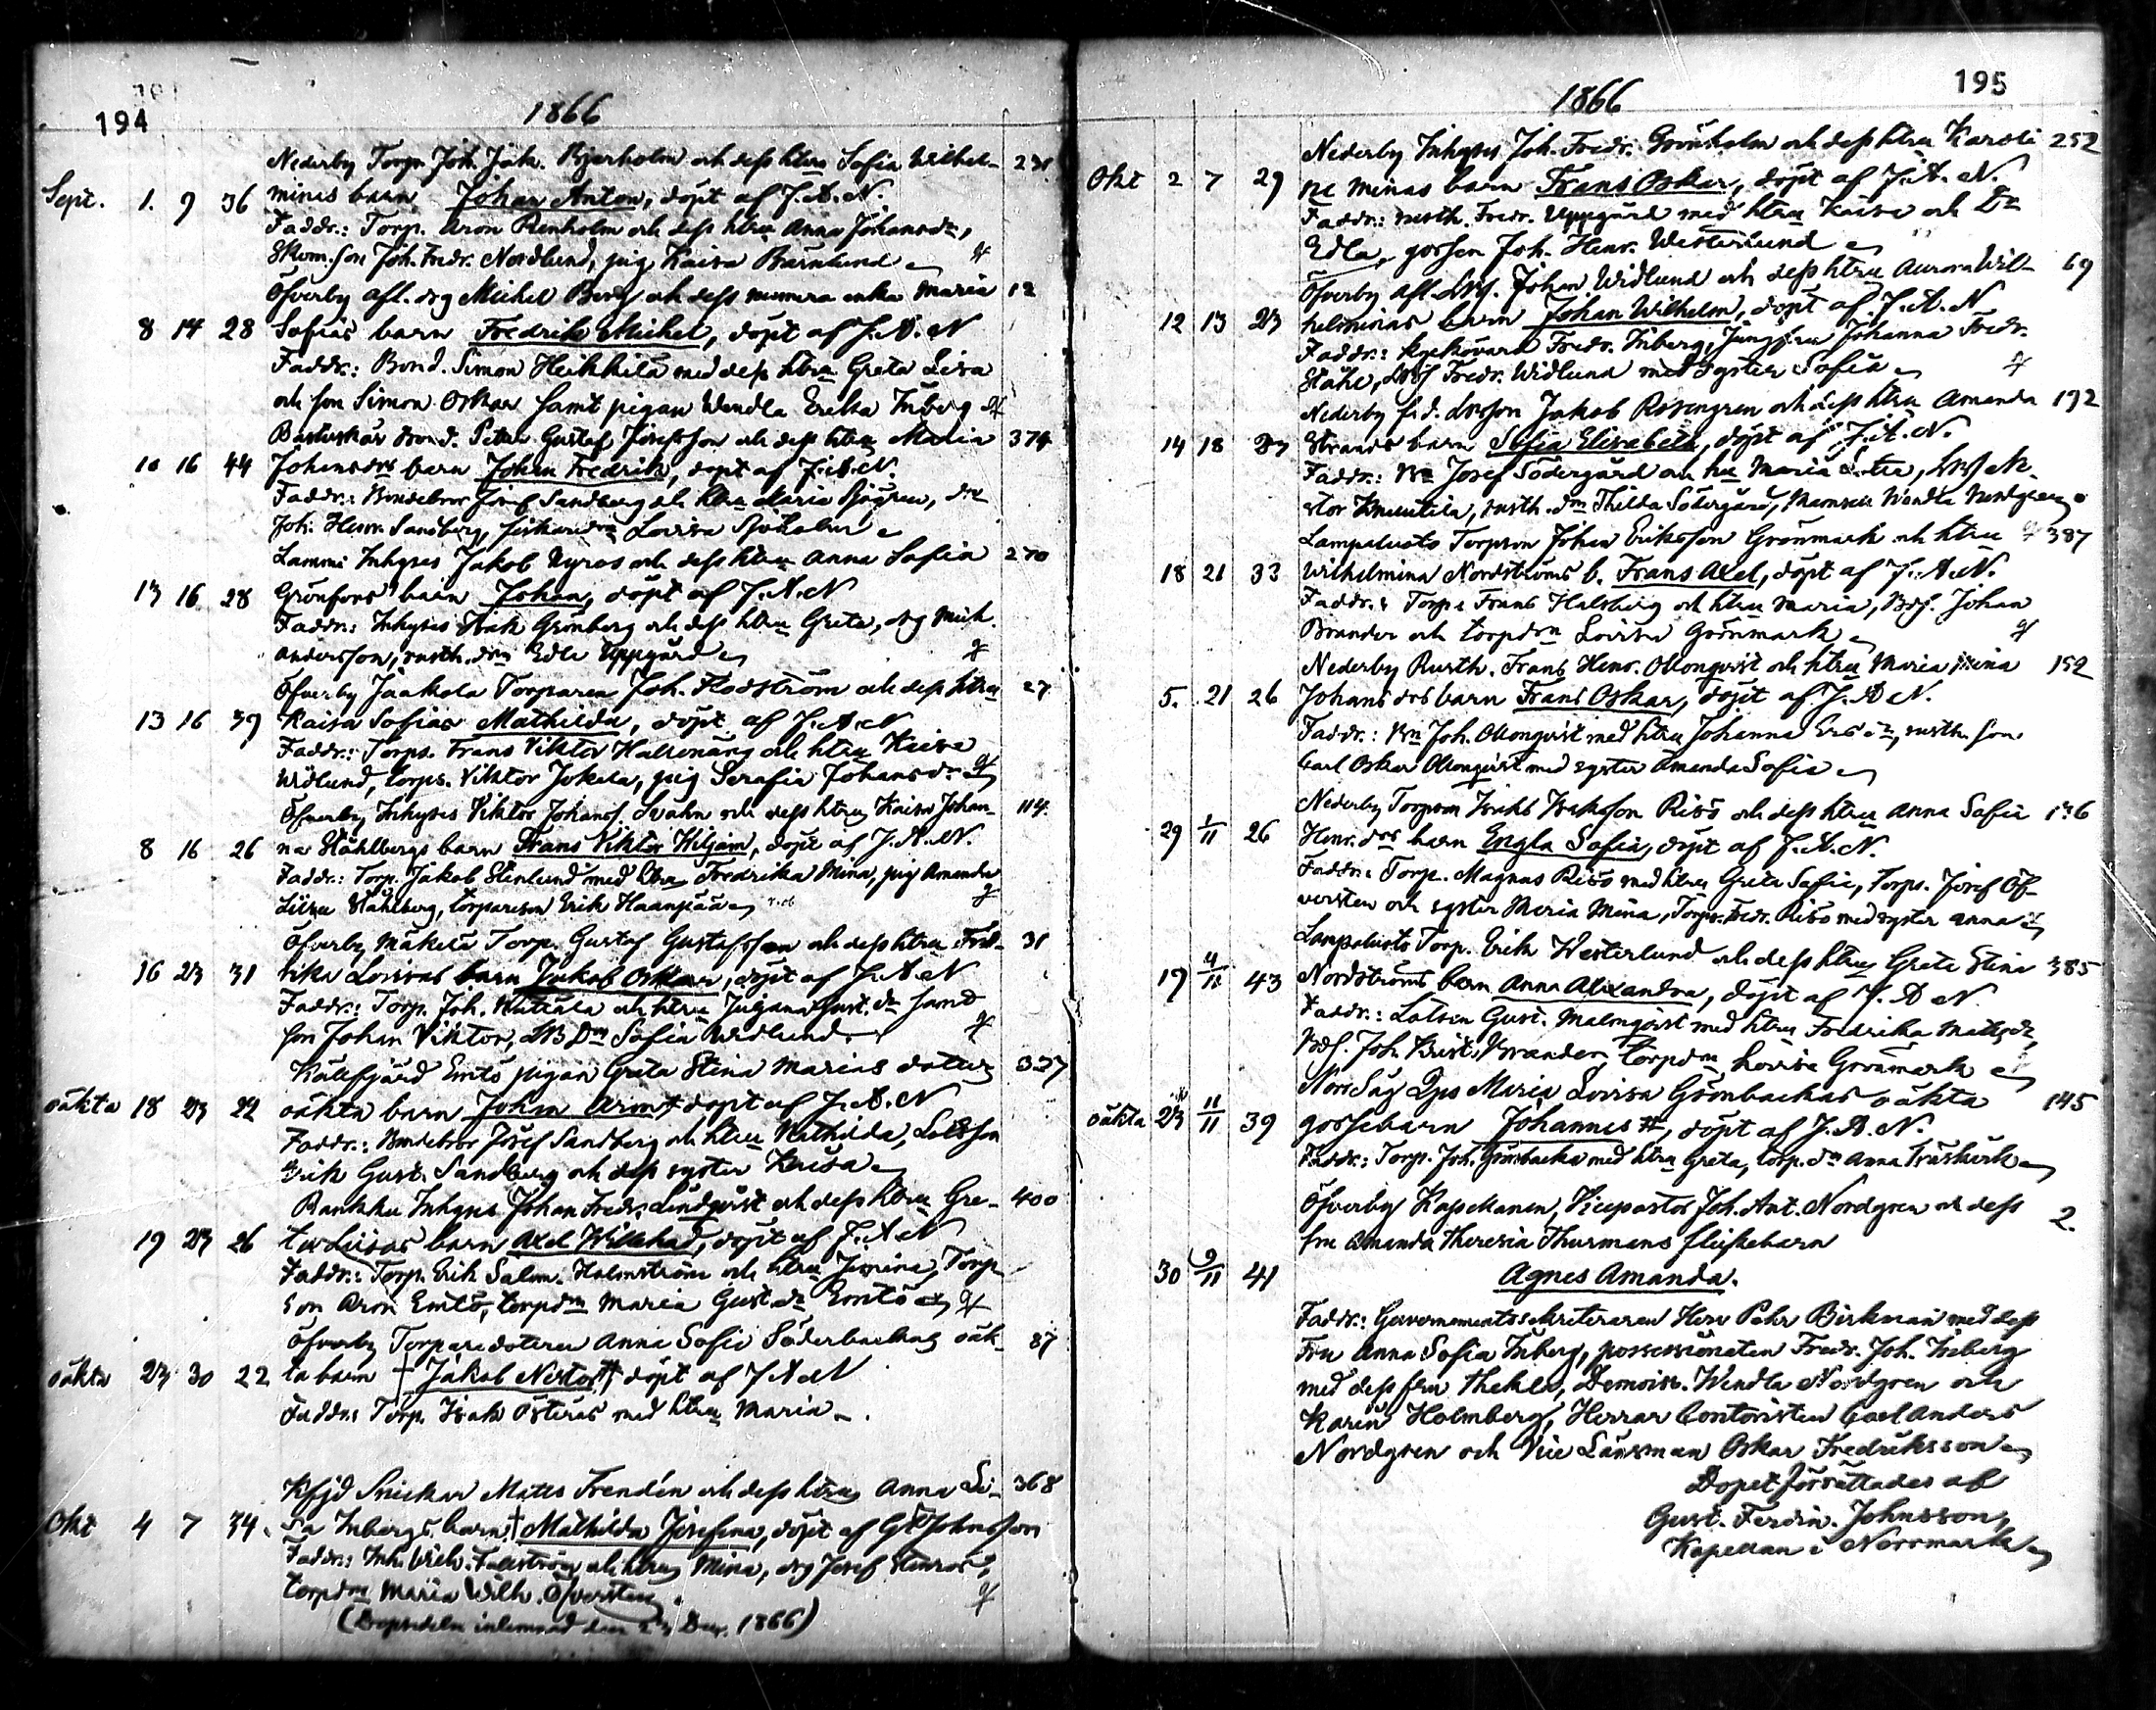 194
1866
Nederby Torpr Joh. Jak. Bjerholm och dess htru Sofia Wilhel- 231
Sept. 1. 9 36 minas barn Johan Anton, döpt af J.A.N.
Faddr.: Torp. Aron Renholm och dess htru Anna Johansdr,
Skom.son Joh. Fredr. Nordlund, pig Kaisa Barnlund
Öfverby afl. drg Michel Berg och dess numera enka Maria 12
8 14 28 Sofias barn Fredrik Michel, döpt af J.A.N
Faddr.: Bond. Simon Heikkilä med dess htru Greta Lisa
och son Simon Oskar samt pigan Wendla Erika Inberg
Bastuskär bond. Petter Gustaf Josefsson och dess htru Maria 374
10 16 44 Johansdrs barn Johan Fredrik, döpt af J.A.N.
Faddr.: Bondebror Josef Sandberg och htru Maria Sjögren, dr
Joh. Henr. Sandberg, fiskaredr Lovisa Sjöholm
Lammi Inhyses Jakob Nyroos och dess htru Anna Sofia 270
13 16 28 Grönfors barn Johan, döpt af J.A.N
Faddr.: Inhyses Isak Grönberg och dess htru Greta, drg Mich.
Andersson, rusth.drn Edla Uppgård
Öfverby Jaakola Torparen Joh. Flodström och dess htru 27
13 16 39 Kaisa Sofias Mathilda, döpt af J.A.N
Faddr.: Torps. Frans Viktor Hallenäng och htru Kaisa
Widlund, torps. Viktor Jokela, pig Serafia Johansdr
Öfverby Inhyses Viktor Johans. Svahn och dess htru Kaisa Johan- 114.
8 16 26 na Ståhlbergs barn Frans Viktor Wiljam, döpt af J.A.N.
Faddr.: Torp. Jakob Stenlund med htru Fredrika Mina, pig Amanda
Ståhlberg, torpareson Erik Haanpää
Öfverby Mäkelä Torp. Gustaf Gustafsson och dess htru Fred- 31
16 23 31 rika Lovisas barn Jakob Oskar, döpt af J.A.N
Faddr.: Torp. Joh. och htru Juliana Gust.dr samt
son Johan Viktor, Sofia Widlund
Kallfjärd Emtö pigan Greta Stina Marias dotter 327
oäkta 18 23 22 oäkta barn Johan Aron döpt af J.A.N
Faddr.: Bondebror Josef Sandberg och htru Mathilda, Lotsson
Erik Gust. Sandberg och dess syster Kaisa
Rankku Inhyses Johan Fredr. Lindqvist och dess htru Gre- 400
19 23 26 ta Lisas barn Axel Willehad, döpt af J.A.N
Faddr.: Torp. Erik Salom. Holmström och htru Josefina, Torp
son Aron Emtö, torpdrn Maria Gust.dr Emtö
Öfverby Torparedottern Anna Sofia Söderbackas oäk- 87
oäkta 23 30 22 ta barn † Jakob Nestor döpt af J.A.N
Faddr.: Torp. Isak Österås med htru Maria
Kfjd Snickar Matts Frendén och dess htru Anna Li- 368
Okt 4 7 34. sa Inbergs barn † Mathilda Josefina, döpt af G.F. Johnsson
Faddr.: Inh. Wilh. Fallström och htru Mina, drg Josef Stenroos,
torpdrn Maria Wilh. Öfversten.
(Dopsedeln inlemnad den 23 Dec. 1866)
195
1866
Nederby Inhyses Joh. Fredr. Grönholm och dess htru Karoli 252
Okt 2 7 29 ne minas barn Frans Oskar, döpt af J.A.N.
Faddr.: rusth. Fredr. Uppgård med htru Kaisa och Dr
Edla, gossen Joh. Henr. Westerlund
Öfverby afl. Johan Widlund och dess htru Aurora Wil- 69
12 13 23 helminas barn Johan Wilhelm, döpt af J.A.N
Faddr.: Fredr. Inberg, Jungfru Johanna Fredr.
Ståhl, Fredr. Widlund med syster Sofia
Nederby Jakob Rosengren och dess htru Amanda 192
14 18 27 Strands barn Sofia Elisabeth, döpt af J.A.N.
Faddr.: Bn Josef Södergård och htru Maria Lotta,
rusth.drn Thilda Södergård, Mamsell Wendla Nordgren
Lampaluoto Torpson Johan Eriksson Grönmark och htru 387
18 21 33 Wilhelmina Nordströms b. Frans Axel, döpt af J.A.N.
Faddr.: Torp. Frans Halsberg och htru Maria, Johan
Brander och torpdrn Lovisa Grönmark
Nederby Rusth. Frans Henr. Blomqvist och htru Maria 152
5. 21 26 Johansdrs barn Frans Oskar, döpt af J.A.N.
Faddr.: Bn Joh. Blomqvist med htru Johanna rusth.son
Carl Oskar Blomqvist med syster Amanda Sofia
Nederby Torpson Isak Isaksson Risö och dess htru Anna Sofia 136
29 1/11 26 Henr.drs barn Engla Sofia, döpt af J.A.N.
Faddr.: Torp. Magnus Risö med htru Greta Sofia, torps. Josef Öf-
versten och syster Maria Mina, Torps. Fredr. Risö med syster Anna
Lampaluoto Torp. Erik Westerlund och dess htru Greta Stina 385
19 4/11 43 Nordströms barn Anna Alexandra, döpt af J.A.N
Faddr.: Lotsen Gust. Malmqvist med htru Fredrika Mattsdr,
Joh. Brander, torpdrn Lovisa Grönmark
Maria Lovisa Grönbackas oäkta 145
oäkta 23 11/11 39 gossebarn Johannes, döpt af J.A.N.
Faddr.: Torp. Joh. Grönbacka med htru Greta, torp.drn Anna
Öfverby Kapellanen, Vicepastor Joh. Ant. Nordgren och dess 2.
fru Amanda Theresia Thurmans flickebarn
30 9/11 41 Agnes Amanda.
Faddr.: Guvernementssekreteraren Herr Pehr Birkman med dess
Fru Anna Sofia Inberg, possessionaten Fredr. Joh. Inberg
med dess fru Thekla, Demois. Wendla Nordgren och
Karin Holmberg, Herrar Contoristen Carl Anders
Nordgren och Vice Länsman Oskar Fredriksson
Dopet förrättades af
Gust. Ferdin. Johnsson,
Kapellan i Norrmark